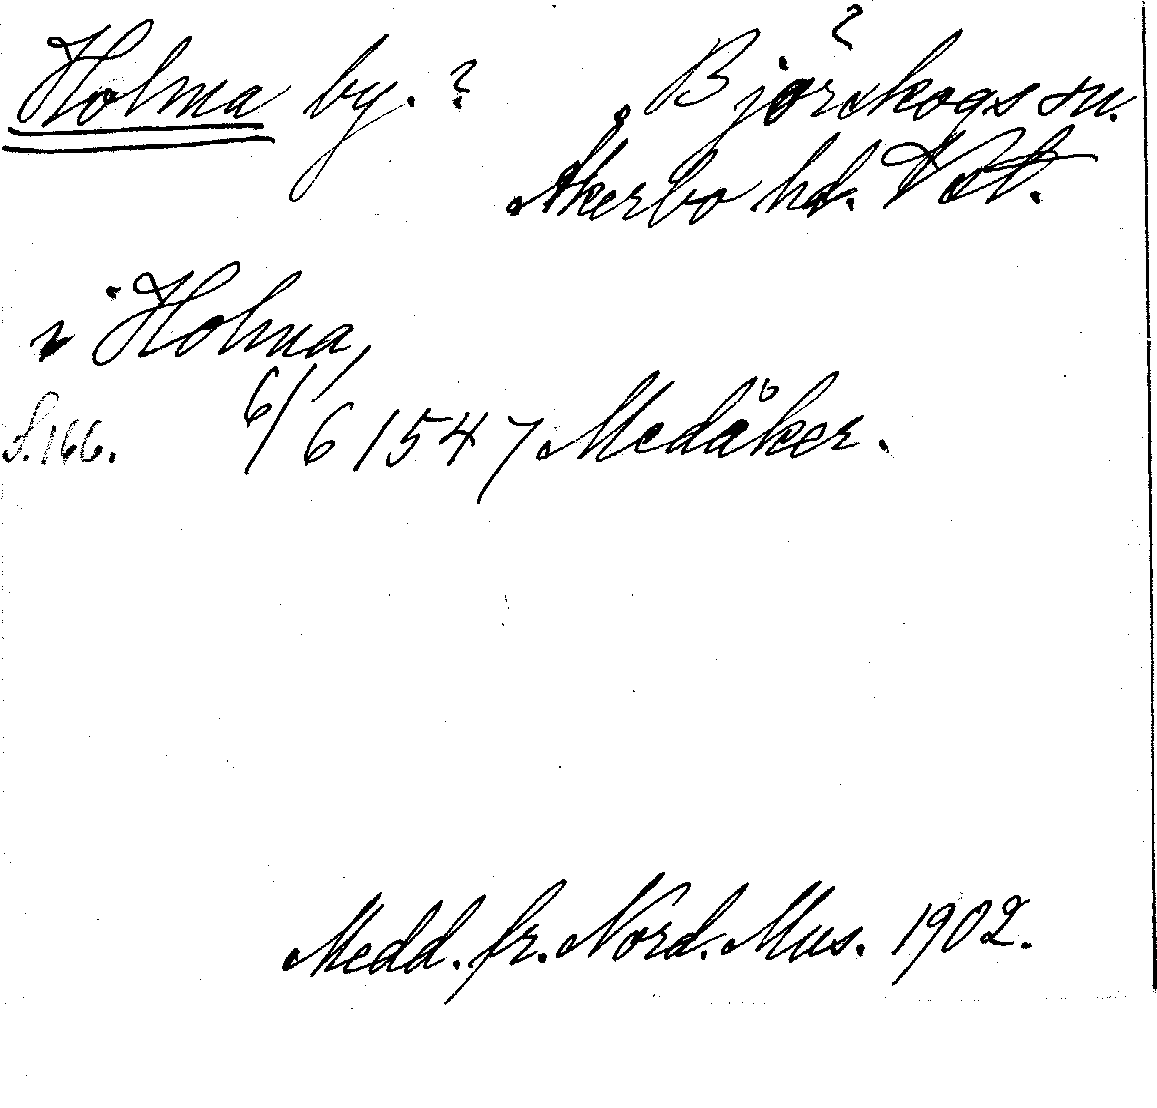 Holma by. ? Björskogs sn. ?
Åkerbo hd. Vstl.
i Holma,
S. 166. 6/6 1547 Medåker.
Medd. fr. Nord. Mus. 1902.